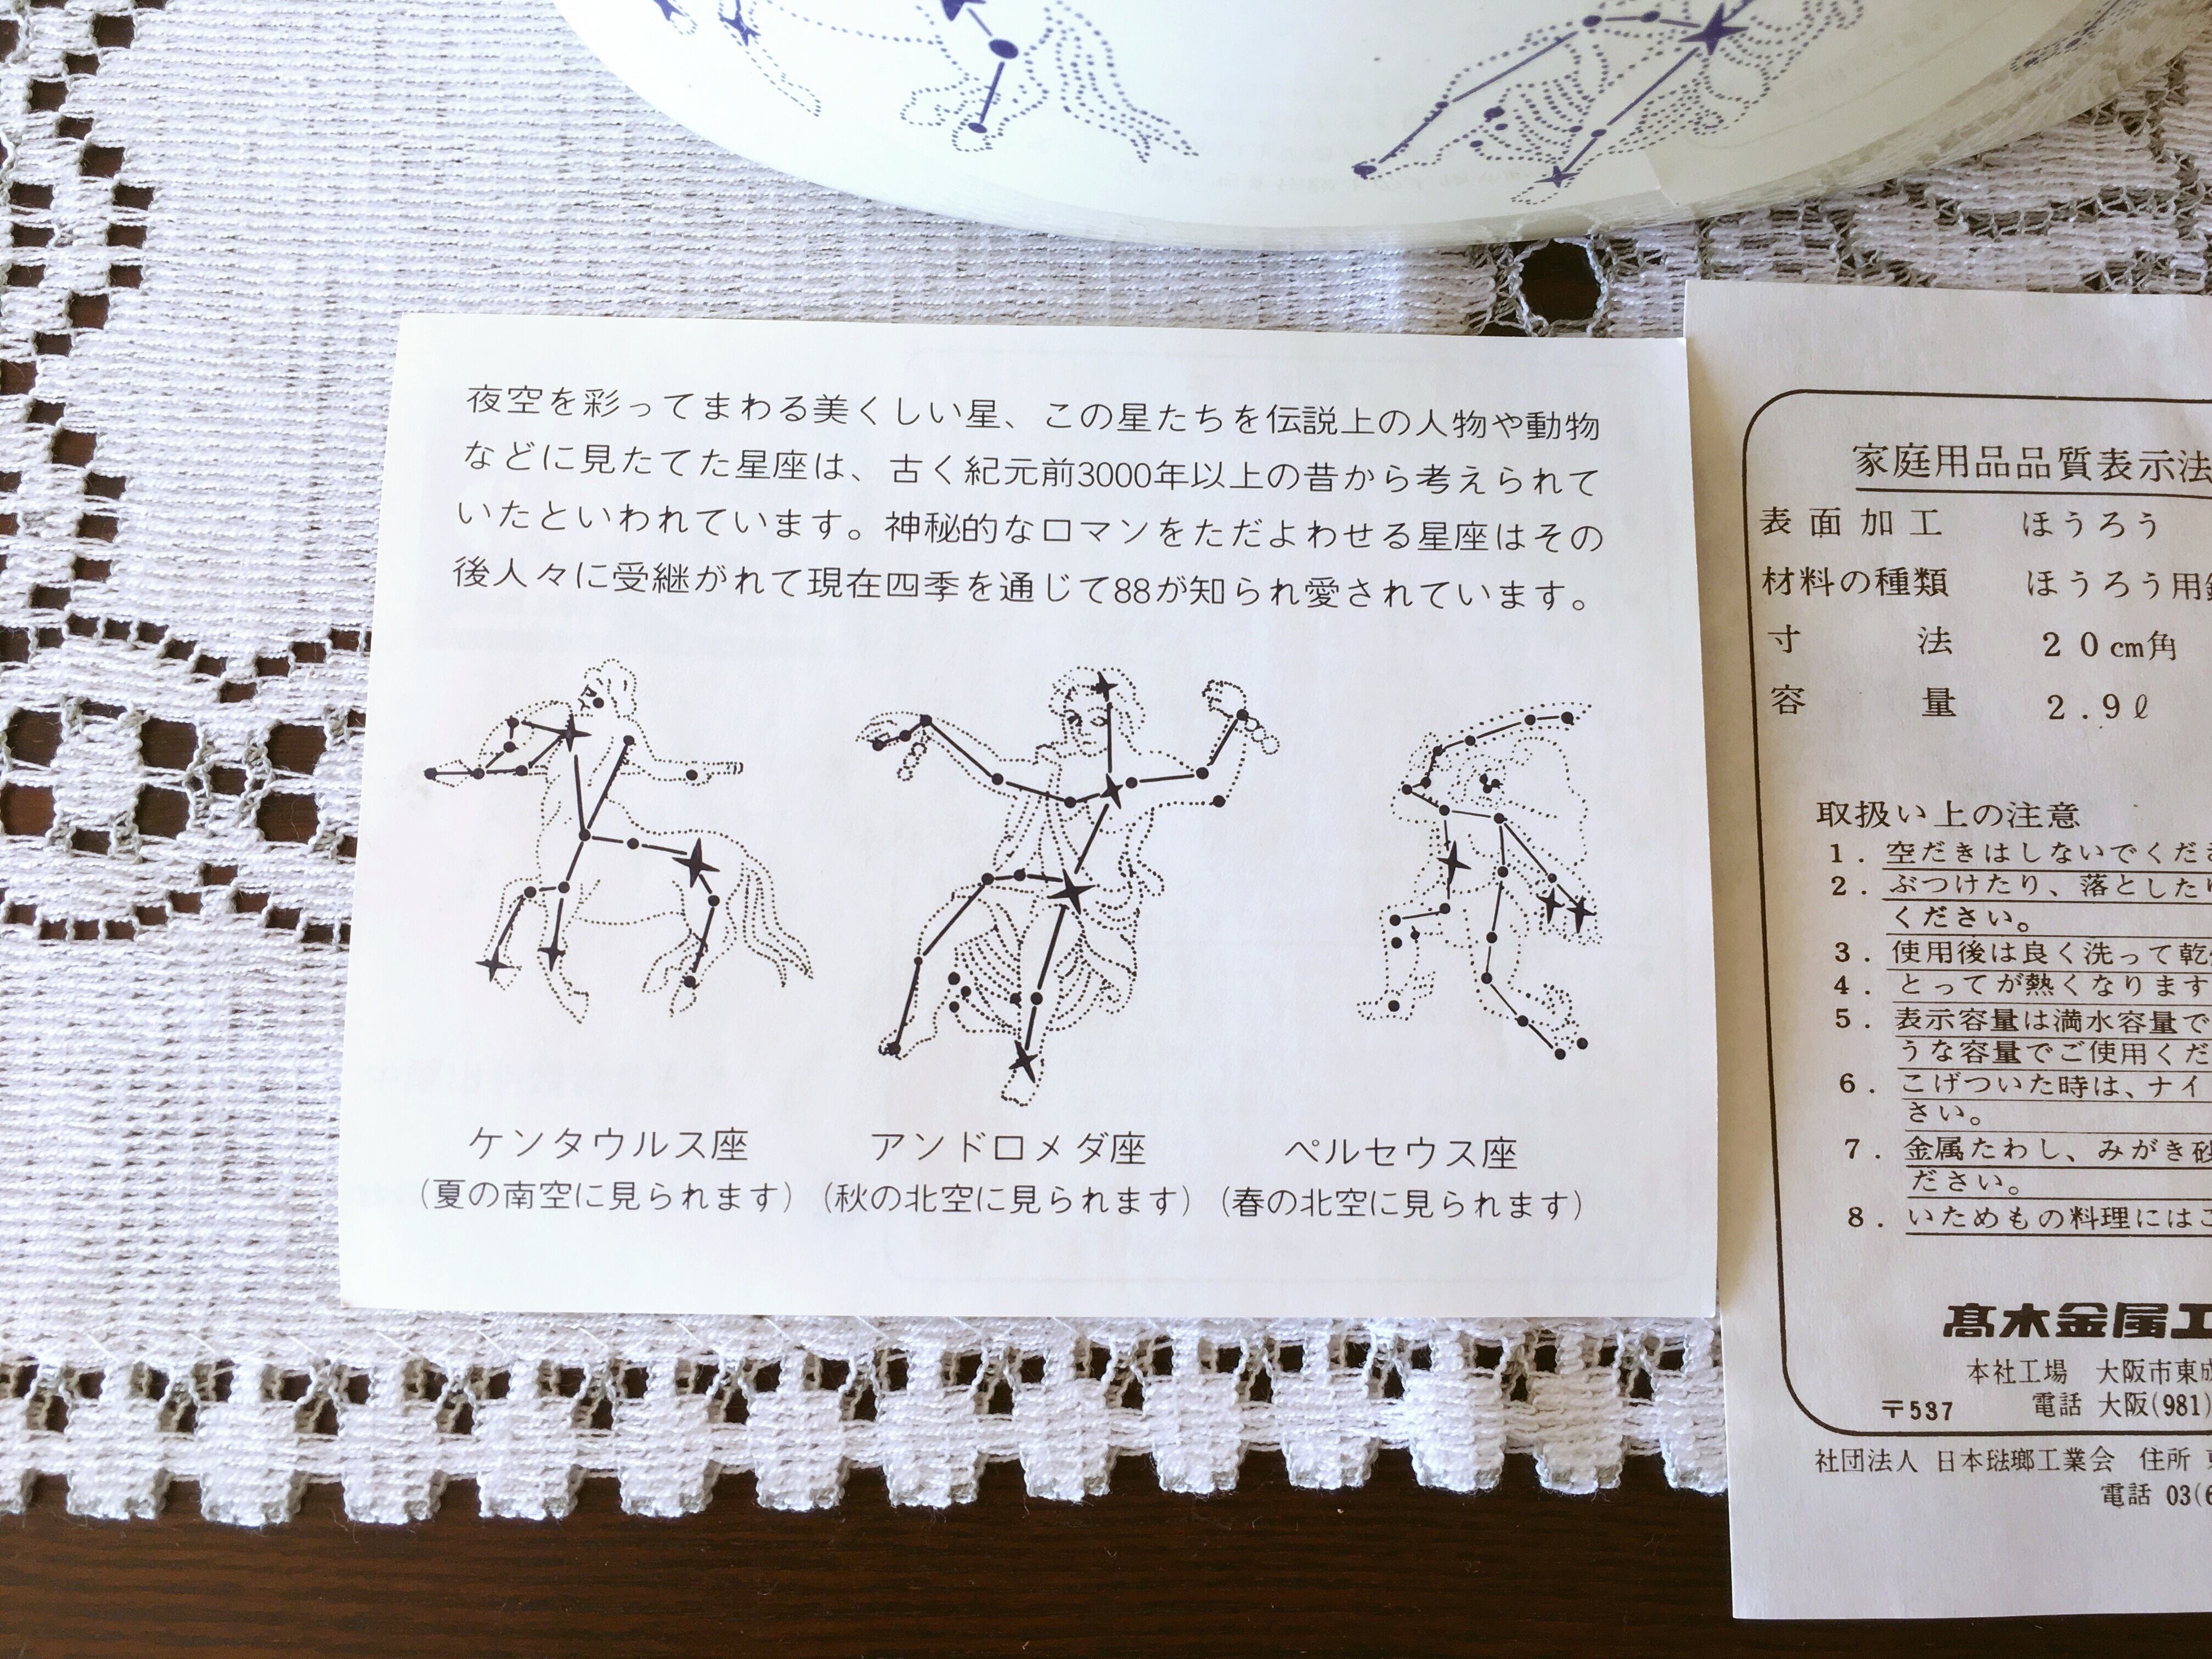 夜空を彩ってまわる美くしい星、この星たちを伝説上の人物や動物
などに見たてた星座は、古く紀元前3000年以上の昔から考えられて
いたといわれています。神秘的なロマンをただよわせる星座はその
後人々に受継がれて現在四季を通じて88が知られ愛されています。
ケンタウルス座 アンドロメダ座 ペルセウス座
(夏の南空に見られます) (秋の北空に見られます) (春の北空に見られます)
家庭用品品質表示法
表面加工 ほうろう
材料の種類 ほうろう用
寸法 20cm角
容量 2.9ℓ
取扱い上の注意
1. 空だきはしないでくだ
2. ぶつけたり、落とした
ください。
3. 使用後は良く洗って乾
4. とってが熱くなります
5. 表示容量は満水容量で
うな容量でご使用くだ
6. こげついた時は、ナイ
さい。
7. 金属たわし、みがき砂
ださい。
8. いためもの料理には
髙木金属工
本社工場 大阪市東成
〒537 電話 大阪(981)
社団法人 日本琺瑯工業会 住所
電話 03(6